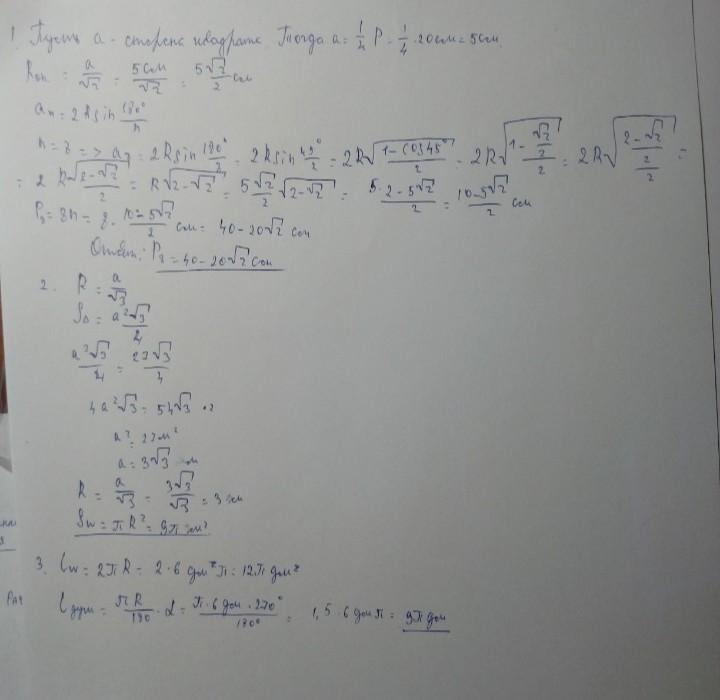 1. Пусть a - сторона квадрата. Тогда a = 1/4 P = 1/4 · 20см = 5см.
Rоп = a/√2 = 5см/√2 = 5√2/2 см
aₙ = 2Rsin 180°/n
n = 8 => a₈ = 2Rsin 180°/8 = 2Rsin 45°/2 = 2R√(1-cos45°/2) = 2R√(1-√2/2/2) = 2R√(2-√2/2/2) =
= 2R√(2-√2)/2 = R√(2-√2) = 5√2/2 √(2-√2) = 5·2-5√2/2 = 10-5√2/2 см
P₈ = 8n = 8 · 10-5√2/2 см = 40-20√2 см
Ответ: P₈ = 40-20√2 см
2. R = a/√3
S△ = a²√3/4
a²√3/4 = 27√3/4
a² = 27м²
a = 3√3 м
R = a/√3 = 3√3/√3 = 3
= πR² = 9π
3. = 2πR = 2·6 дм²π = 12π дм²
lдуги = πR/180 · α = π·6 дм·270°/180° = 1,5·6 дм π = 9π дм